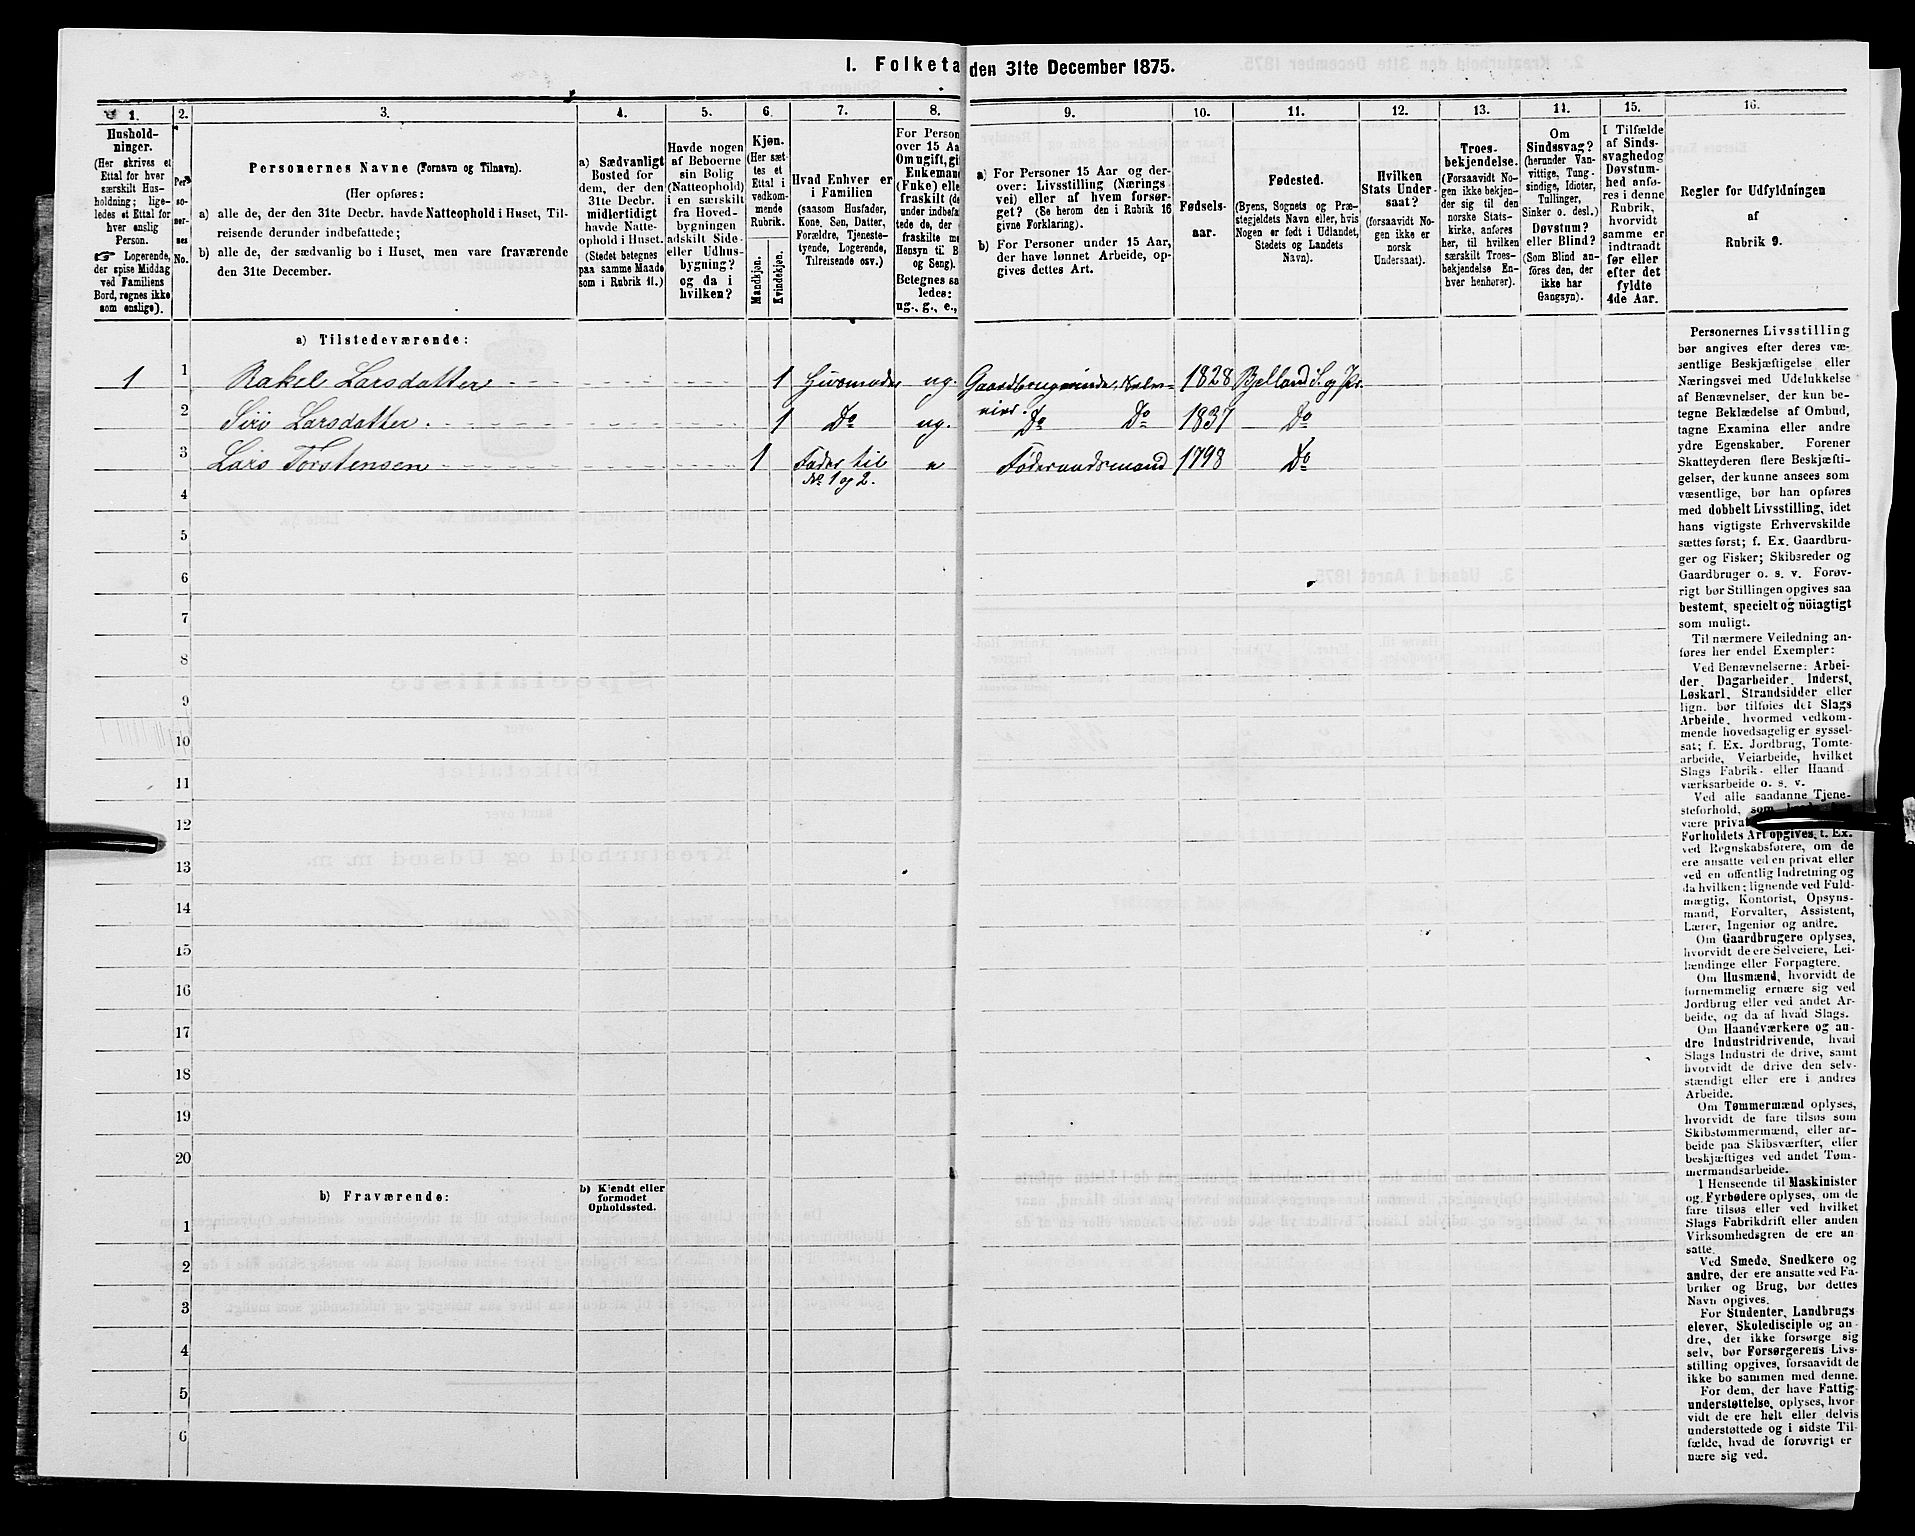 I. Folketa den 31te December 1875.
1. 2. 3. 4. 5. 6. 7. 8. 9. 10. 11. 12. 13. 14. 15. 16.
Hushold-
ninger.
(Her skrives et
Ettal for hver
særskilt Hus-
holdning; lige-
ledes et Ettal for
hver enslig
Person.
☞ Logerende,
der spise Middag
ved Familiens
Bord, regnes ikke
som enslige).
Per-
so-
ner-
nes
No.
Personernes Navne (Fornavn og Tilnavn).
(Her opføres:
a) alle de, der den 31te Decbr. havde Natteophold i Huset, Til-
reisende derunder indbefattede;
b) alle de, der sædvanlig bo i Huset, men vare fraværende
den 31te December.
a) Sædvanligt
Bosted for
dem, der den
31te Decbr.
midlertidigt
havde Natte-
ophold i Huset.
(Stedet betegnes
paa samme Maade
som i Rubrik 11.)
Havde nogen
af Beboerne
sin Bolig
(Natteophold)
i en særskilt
fra Hoved-
bygningen
adskilt Side-
eller Udhus-
bygning?
og da i
hvilken?
Kjøn.
(Her sæt-
tes et
Ettal i
vedkom-
mende
Rubrik.
Mandkjøn.
Kvindekjøn.
Hvad Enhver er
i Familien
(saasom Husfader,
Kone, Søn, Datter,
Forældre, Tjeneste-
tyende, Logerende,
Tilreisende osv.)
For Person
over 15 Aa
Om ugift, gi
Enkeman
(Fnke) elle
fraskilt (de
under indbefat
tede de, der
fraskilte me
Hensyn til B
og Seng).
Betegnes saa
ledes:
ug., g., e.,
a) For Personer 15 Aar og der-
over: Livsstilling (Nærings-
vei) eller af hvem forsør-
get? (Se herom den i Rubrik 16
givne Forklaring).
b) For Personer under 15 Aar,
der have lønnet Arbeide, op-
gives dettes Art.
Fødsels-
aar.
Fødested.
(Byens, Sognets og Præ-
stegjeldets Navn eller, hvis
Nogen er født i Udlandet,
Stedets og Landets
Navn).
Hvilken
Stats Under-
saat?
(forsaavidt No-
gen ikke er
norsk
Undersaat).
Troes-
bekjendelse.
(Forsaavidt No-
gen ikke bekjen-
der sig til den
norske Stats-
kirke, anføres
her, til hvilken
særskilt Troes-
bekjendelse En-
hver henhører).
Om
Sindssvag?
(herunder Van-
vittige, Tung-
sindige, Idioter,
Tullinger,
Sinker o. desl.)
Døvstum?
eller Blind?
(Som Blind an-
føres den, der
ikke har
Gangsyn).
I Tilfælde
af Sinds-
svaghed og
Døvstum-
hed anfø-
res i denne
Rubrik,
hvorvidt
samme er
indtraadt
før eller
efter det
fyldte
4de Aar.
Regler for Udfyldningen
af
Rubrik 9.
a) Tilstedeværende:
1 1 Rakel Larsdatter 1 Huusmoder ug. Gaardbrugerinde, Selv- 1828 Bjelland S. og Pr.
eier.
2 Siri Larsdatter 1 Do ug. Do Do 1837 Do
3 Lars Torstensen 1 Fader til e Føderaadsmand 1798 Do
No 1 og 2.
4
5
6
7
8
9
10
11
12
13
14
15
16
17
18
19
20
b) Fraværende:
b) Kjendt eller
formodet
Opholdssted.
1
2
3
4
5
6
Personernes Livsstilling
bør angives efter deres væ-
sentlige Beskjæftigelse eller
Næringsvei med Udelukkelse
af Benævnelser, der kun be-
tegne Beklædelse af Ombud,
tagne Examina eller andre
ydre Egenskaber. Forener
Skatteyderen flere Beskjæfti-
gelser, der kunne ansees som
væsentlige, bør han opføres
med dobbelt Livsstilling, idet
hans vigtigste Erhvervskilde
sættes først; f. Ex. Gaardbru-
ger og Fisker; Skibsreder og
Gaardbruger o. s. v. Forøv-
rigt bør Stillingen opgives saa
bestemt, specielt og nöiagtigt
som muligt.
Til nærmere Veiledning an-
føres her endel Exempler:
Ved Benævnelserne: Arbei-
der, Dagarbeider, Inderst,
Løskarl, Strandsidder eller
lign. bør tilføies det Slags
Arbeide, hvormed vedkom-
mende hovedsagelig er syssel-
sat; f. Ex. Jordbrug, Tomte-
arbeide, Veiarbeide, hvilket
Slags Fabrik- eller Haand-
værksarbeide o. s. v.
Ved alle saadanne Tjene-
steforhold, som
være priva
Forholdets Art opgives, t. Ex.
ved Regnskabsførere, om de
ere ansatte ved en privat eller
ved en offentlig Indretning og
da hvilken; lignende ved Fuld-
mægtig, Kontorist, Opsyns-
mand, Forvalter, Assistent,
Lærer, Ingeniør og andre.
Om Gaardbrugere oplyses,
hvorvidt de ere Selveiere, Lei-
lændinge eller Forpagtere.
Om Husmænd, hvorvidt de
fornemmelig ernære sig ved
Jordbrug eller ved andet Ar-
beide, og da af hvad Slags.
Om Haandværkere og an-
dre Industridrivende, hvad
Slags Industri de drive, samt
hvorvidt de drive den selv-
stændigt eller ere i andres
Arbeide.
Om Tømmermænd oplyses,
hvorvidt de fare tilsøs som
Skibstømmermænd, eller ar-
beide paa Skibsværfter, eller
beskjæftiges ved andet Tøm-
mermandsarbeide.
I Henseende til Maskinister
og Fyrbødere oplyses, om de
fare tilsøs eller ved hvilket
Slags Fabrikdrift eller anden
Virksomhedsgren de ere an-
satte.
Ved Smede, Snedkere og
andre, der ere ansatte ved Fa-
briker og Brug, bør dettes
Navn opgives.
For Studenter, Landbrugs
elever, Skoledisciple og an-
dre, der ikke forsørge sig
selv, bør Forsørgerens Livs-
stilling opgives, forsaavidt de
ikke bo sammen med denne.
For dem, der have Fattig-
understøttelse, oplyses, hvor-
vidt de ere helt eller delvis
understøttede og i sidste Til-
fælde, hvad de forøvrigt er
nære sig ved.